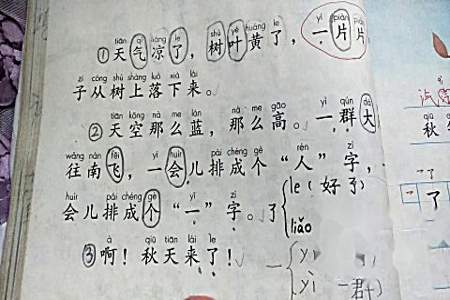 tiān qì liáng le shù yè huáng le yí piàn piàn
①天气凉了，树叶黄了，一片片
zi cóng shù shàng luò xià lái
子从树上落下来。
tiān kōng nà me lán nà me gāo yì qún dà
②天空那么蓝，那么高。一群大
wǎng nán fēi huìr pái chéng gè rén zì
往南飞，一会儿排成个“人”字，
huìr pái chéng gè yī zì
会儿排成个“一”字。
了 le（好了）
liǎo
à qiū tiān lái le
③啊！秋天来了！
一 yī
yì 一群
秋
了